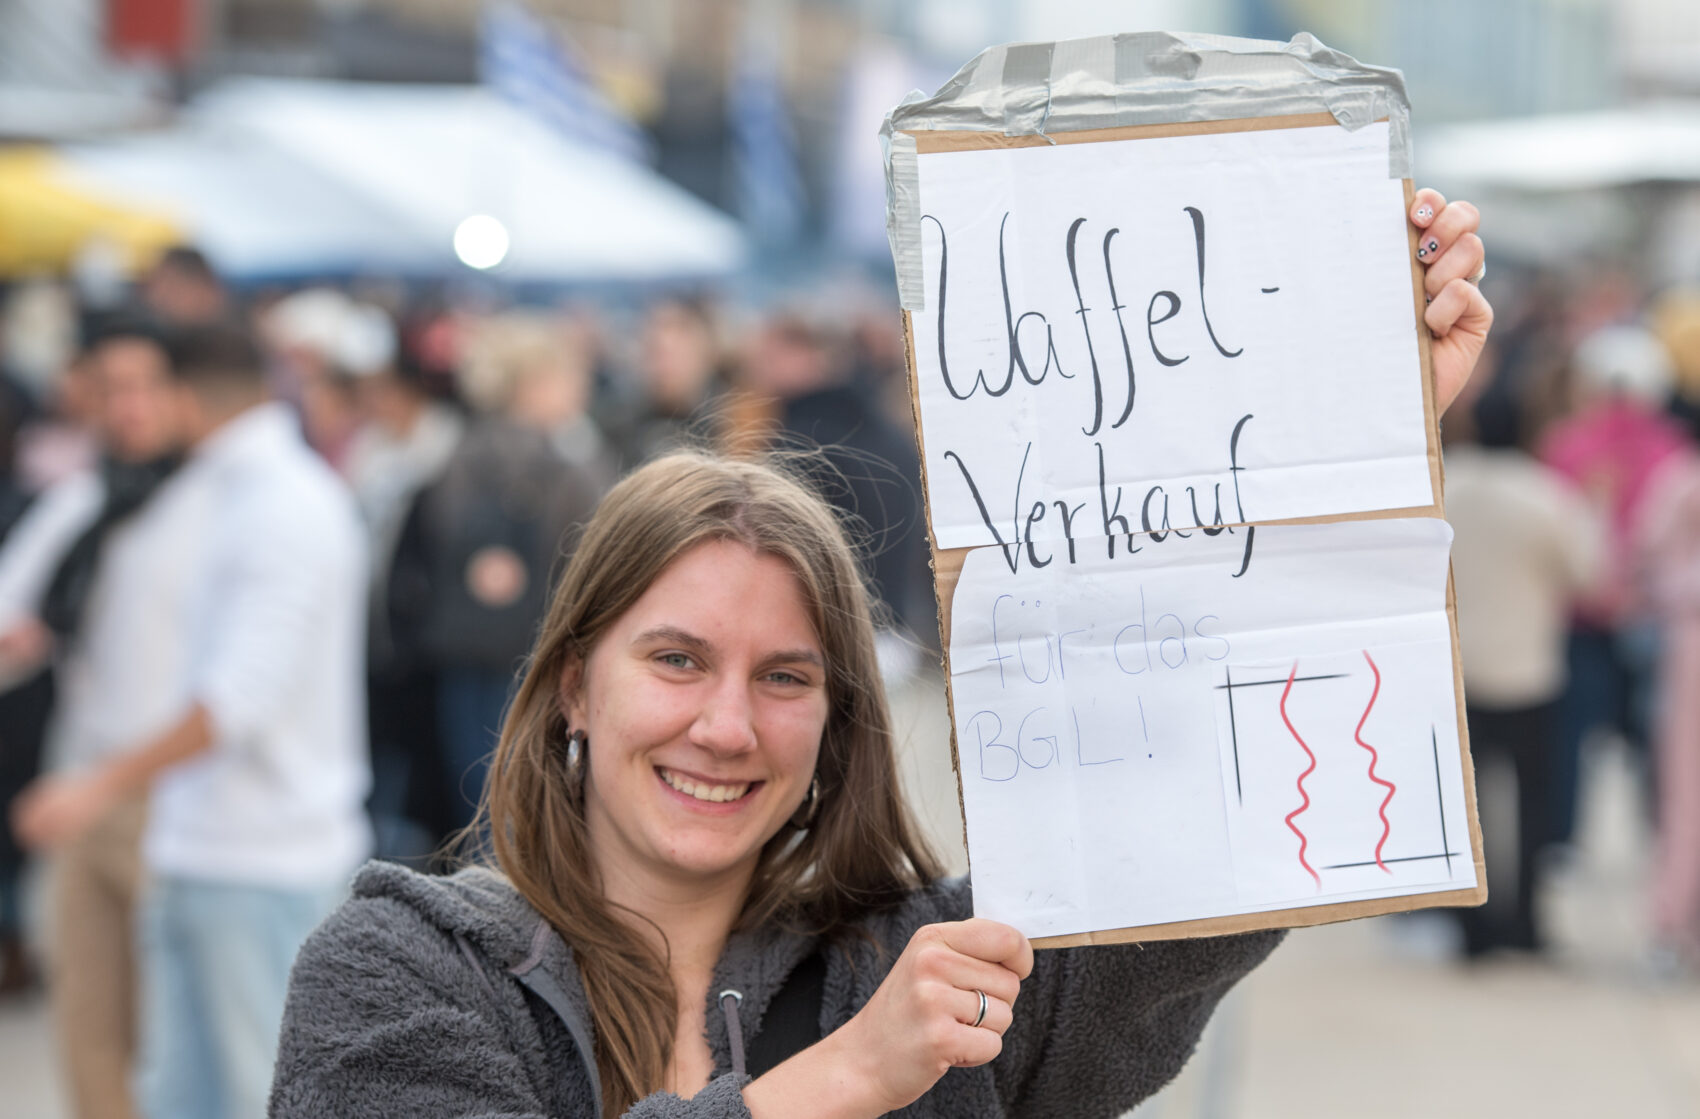 Waffel-
Verkauf
für das
BGL!